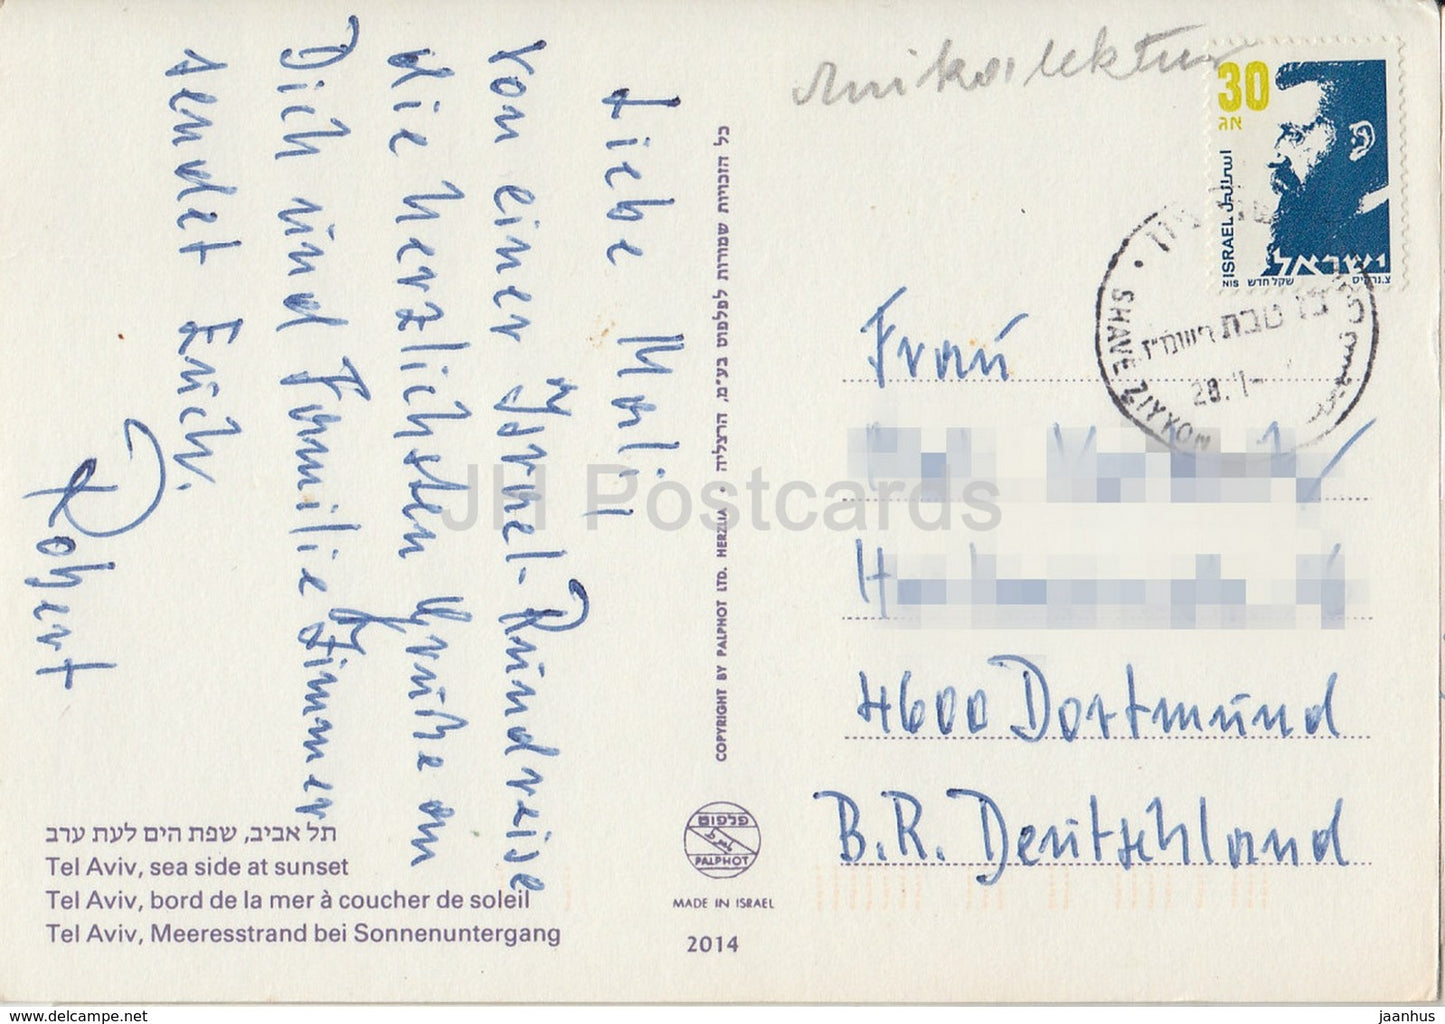 Liebe Marli,
von einer Israel-Rundreise
die herzlichsten Grüße an
Dich und Familie Zimmer
sendet Euch.
Robert
כל הזכויות שמורות לפלפוט בע"מ, הרצליה • COPYRIGHT BY PALPHOT LTD. HERZLIA
פלפוט
PALPHOT
MADE IN ISRAEL
2014
תל אביב, שפת הים לעת ערב
Tel Aviv, sea side at sunset
Tel Aviv, bord de la mer à coucher de soleil
Tel Aviv, Meeresstrand bei Sonnenuntergang
30
אג
ISRAEL اسرائيل
ישראל
NIS שקל חדש
SHAVE ZIYYON
28. 1-
Frau
4600 Dortmund
B.R. Deutschland
JH Postcards
www.delcampe.net
jaanhus